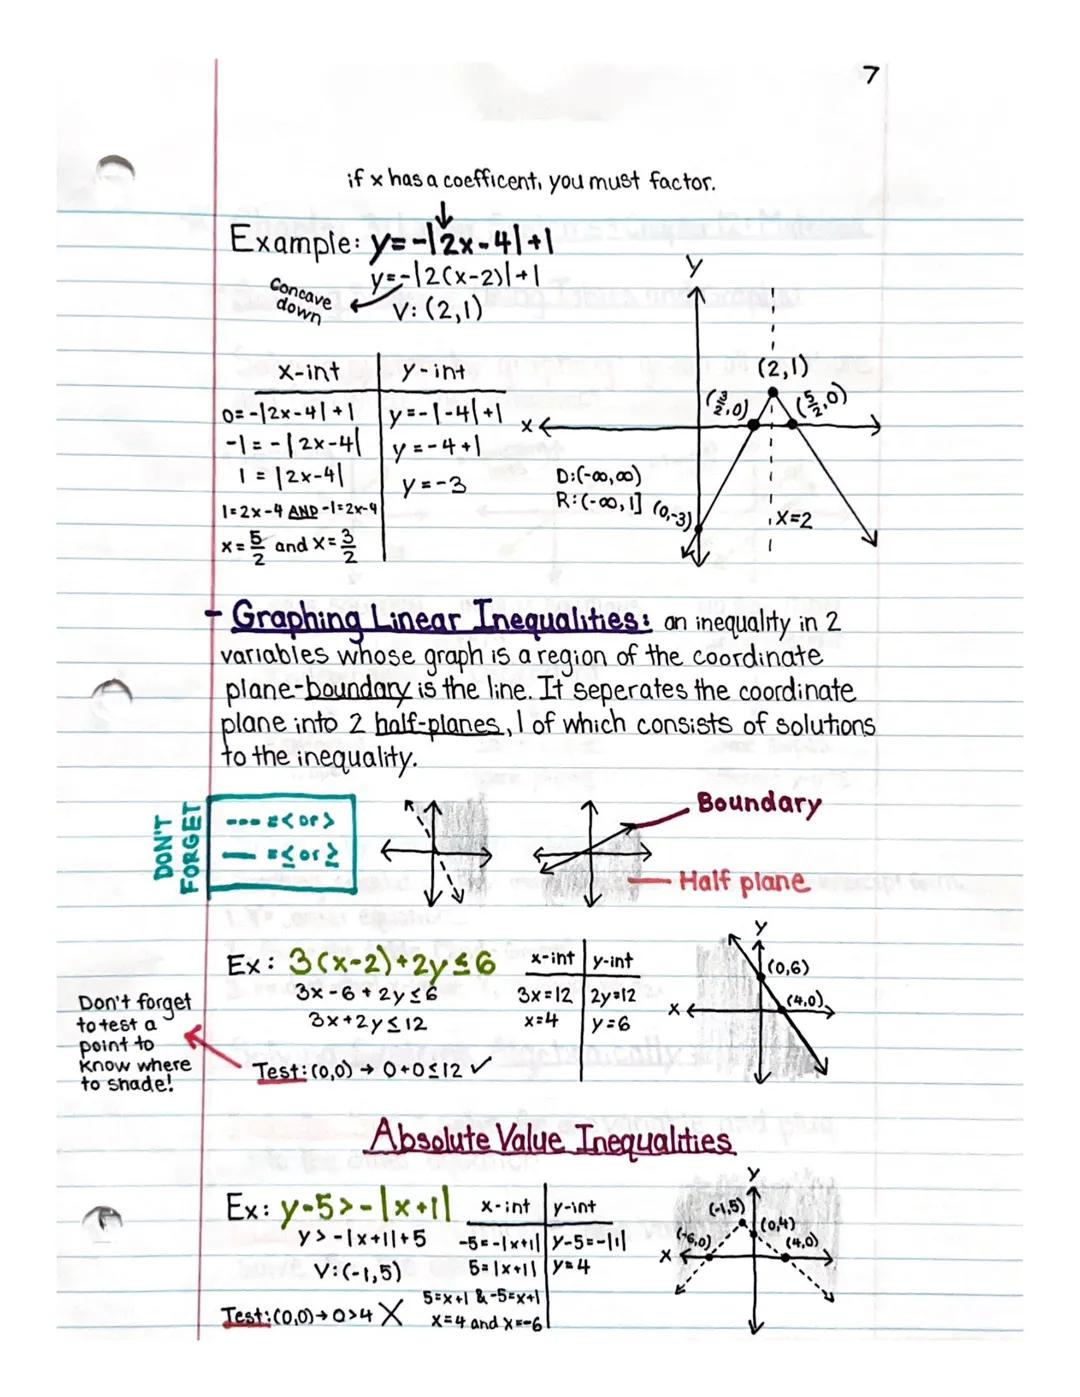 7
if x has a coefficent, you must factor.
Example: y=-|2x-4|+1
y=-|2(x-2)|+1
concave down
V: (2,1)
x-int y-int
0=-|2x-4|+1 y=-|-4|+1
-1=-|2x-4| y=-4+1
1=|2x-4| y=-3
1=2x-4 AND -1=2x-4
x=5/2 and x=3/2
y
(2,1)
(3/2,0) (5/2,0)
x
D:(-∞,∞)
R:(-∞,1] (0,-3)
x=2
- Graphing Linear Inequalities: an inequality in 2
variables whose graph is a region of the coordinate
plane-boundary is the line. It seperates the coordinate
plane into 2 half-planes, 1 of which consists of solutions
to the inequality.
DON'T
FORGET
--- =< or >
— =≤ or ≥
Boundary
Half plane
Ex: 3(x-2)+2y≤6 x-int y-int
3x-6+2y≤6 3x=12 2y=12
3x+2y≤12 x=4 y=6
Test:(0,0)→ 0+0≤12 ✓
Don't forget
to test a
point to
know where
to shade!
y
(0,6)
x (4,0)
Absolute Value Inequalities
Ex: y-5>-|x+1| x-int y-int
y>-|x+1|+5 -5=-|x+1| y-5=-|1|
V:(-1,5) 5=|x+1| y=4
5=x+1 & -5=x+1
Test:(0,0)→0>4 X x=4 and x=-6
y
(-1,5)
(0,4)
(-6,0) (4,0)
x